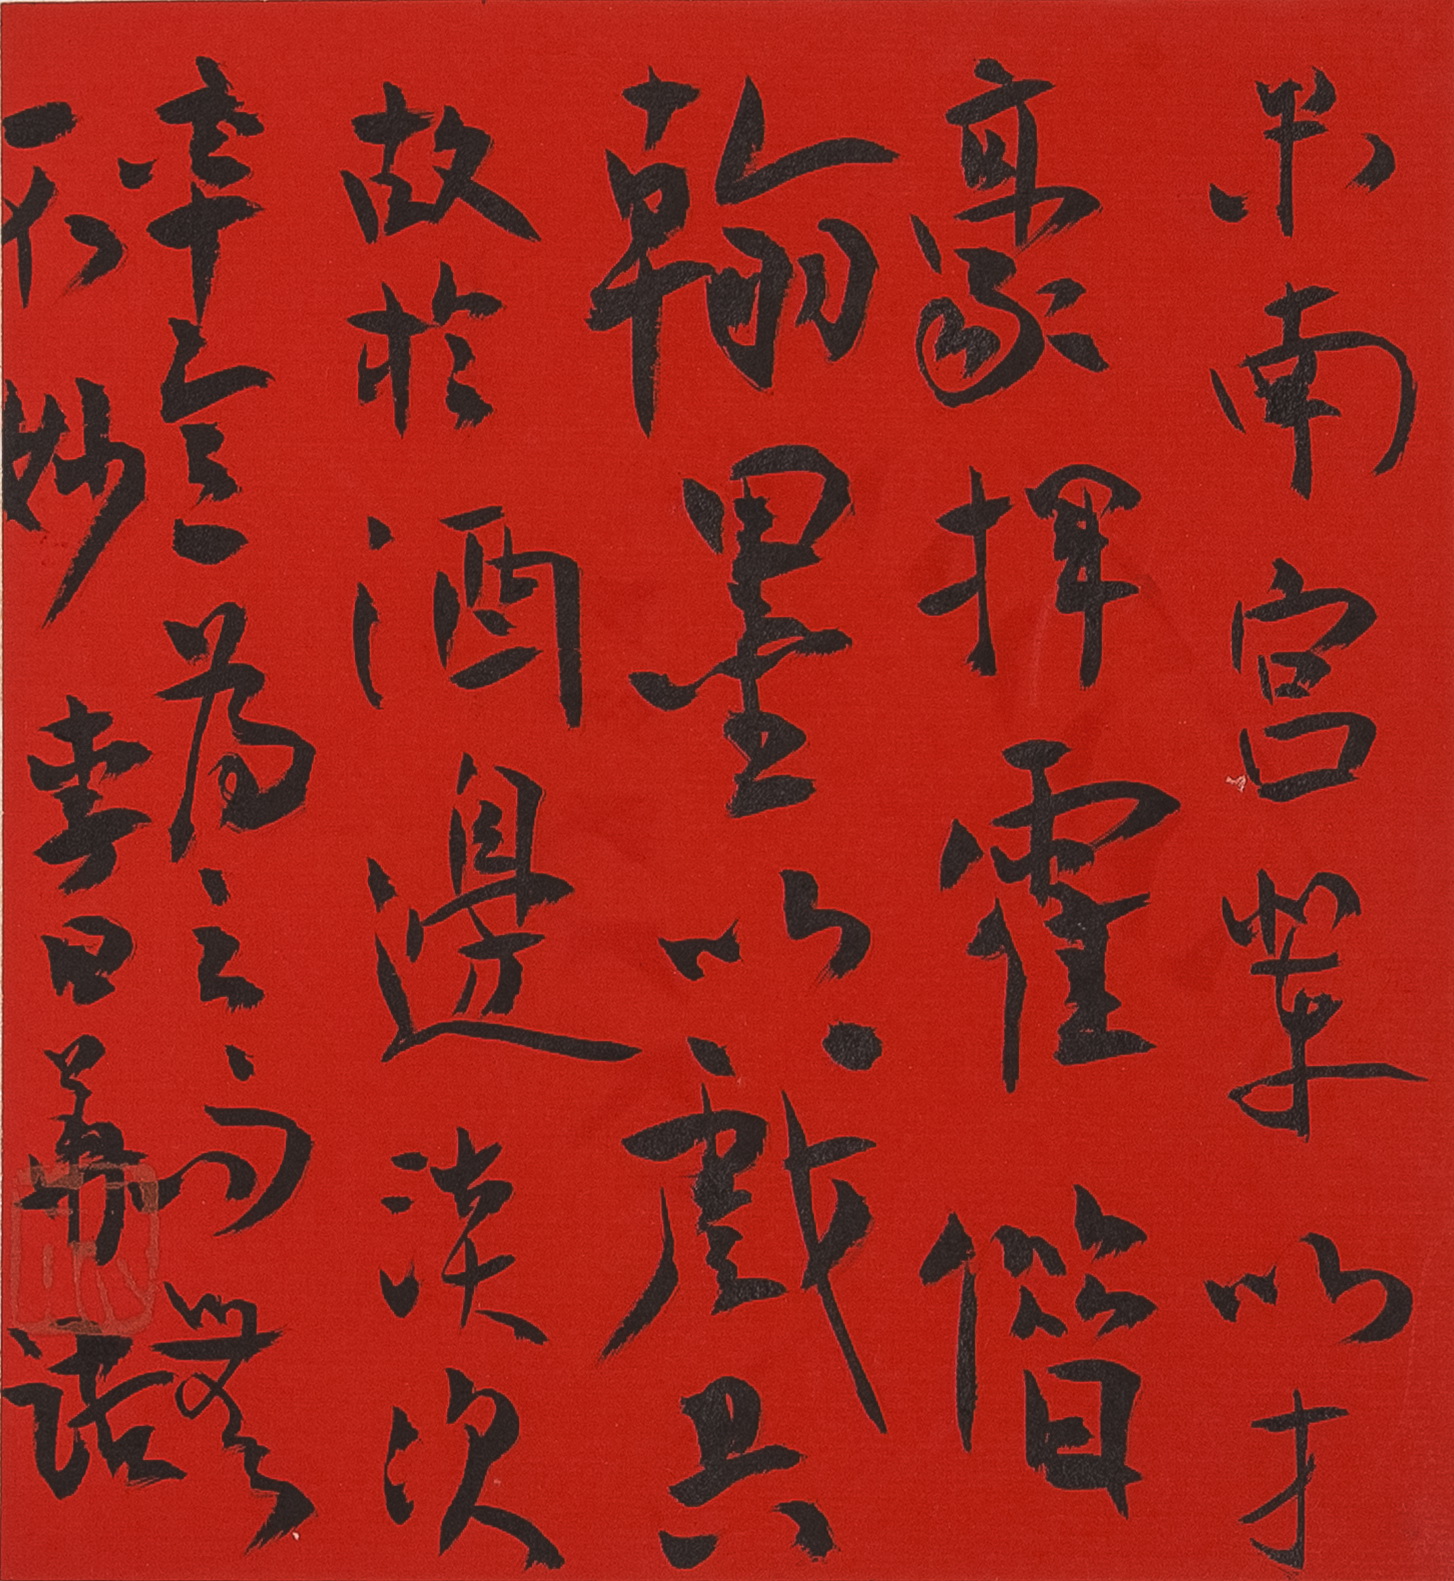 米南宫輩以才
豪揮霍僭
翰墨以戲具
故於酒邊淡次
率意為之而無
不妙 李日華